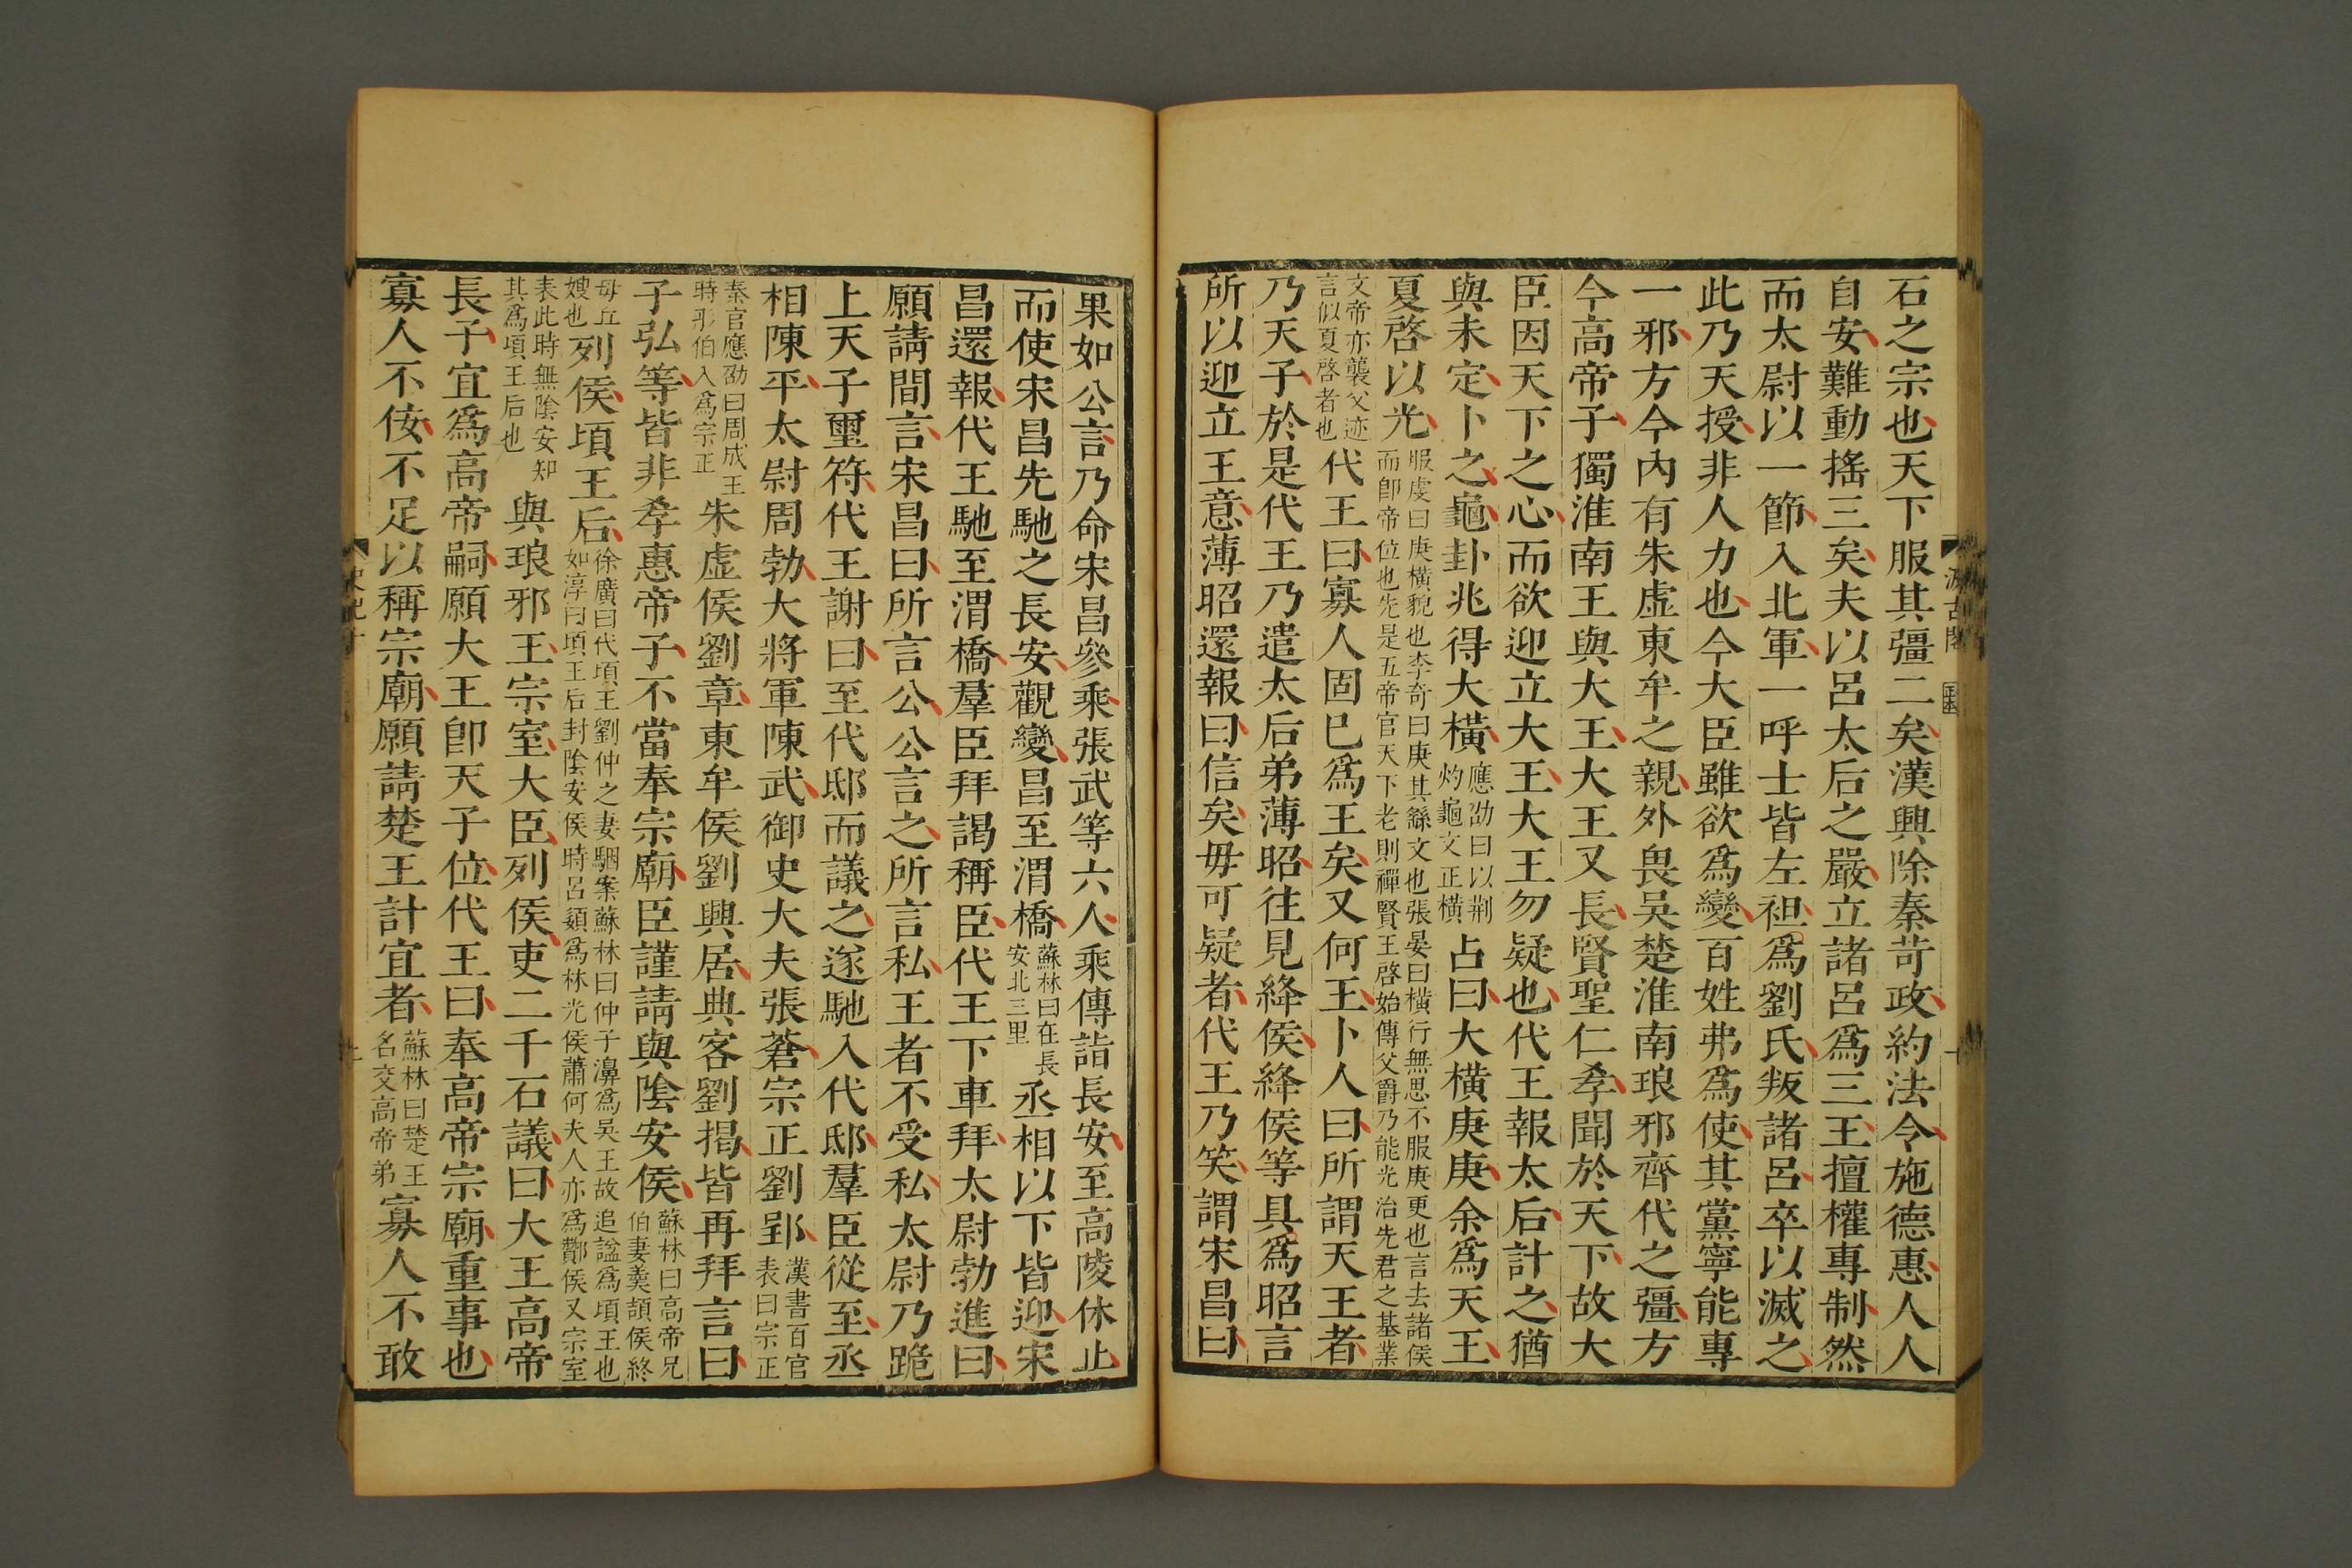 石之宗也天下服其彊二矣漢興除秦苛政約法令施德惠人人
自安難動搖三矣夫以呂太后之嚴立諸呂爲三王擅權專制然
而太尉以一節入北軍一呼士皆左袒爲劉氏叛諸呂卒以滅之
此乃天授非人力也今大臣雖欲爲變百姓弗爲使其黨寧能專
一邪方今內有朱虛東牟之親外畏吳楚淮南琅邪齊代之彊方
今高帝子獨淮南王與大王大王又長賢聖仁孝聞於天下故大
臣因天下之心而欲迎立大王大王勿疑也代王報太后計之猶
與未定卜之龜卦兆得大橫應劭曰以荆灼龜文正橫占曰大橫庚庚余爲天王
夏啓以光服虔曰庚橫貌也李奇曰庚其繇文也張晏曰橫行無思不服庚更也言去諸侯而卽帝位也先是五帝官天下老則禪賢王啓始傳父爵乃能光治先君之基業
文帝亦襲父迹言似夏啓者也代王曰寡人固已爲王矣又何王卜人曰所謂天王者
乃天子於是代王乃遣太后弟薄昭往見絳侯絳侯等具爲昭言
所以迎立王意薄昭還報曰信矣毋可疑者代王乃笑謂宋昌曰
汲古閣
正本
果如公言乃命宋昌參乘張武等六人乘傳詣長安至高陵休止
而使宋昌先馳之長安觀變昌至渭橋蘇林曰在長安北三里丞相以下皆迎宋
昌還報代王馳至渭橋羣臣拜謁稱臣代王下車拜太尉勃進曰
願請間言宋昌曰所言公公言之所言私王者不受私太尉乃跪
上天子璽符代王謝曰至代邸而議之遂馳入代邸羣臣從至丞
相陳平太尉周勃大將軍陳武御史大夫張蒼宗正劉郢漢書百官表曰宗正
秦官應劭曰周成王時彤伯入爲宗正朱虛侯劉章東牟侯劉興居典客劉揭皆再拜言曰
子弘等皆非孝惠帝子不當奉宗廟臣謹請與陰安侯蘇林曰高帝兄伯妻羹頡侯終
母丘嫂也列侯頃王后徐廣曰代頃王劉仲之妻駰案蘇林曰仲子濞爲吳王故追諡爲頃王也如淳曰頃王后封陰安侯時呂嬃爲林光侯蕭何夫人亦爲酇侯又宗室
表此時無陰安知其爲頃王后也與琅邪王宗室大臣列侯吏二千石議曰大王高帝
長子宜爲高帝嗣願大王卽天子位代王曰奉高帝宗廟重事也
寡人不佞不足以稱宗廟願請楚王計宜者蘇林曰楚王名交高帝弟寡人不敢
史記十